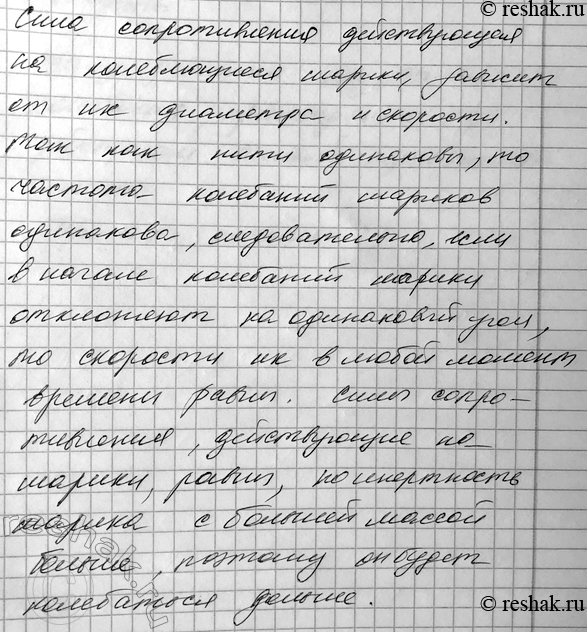 © reshak.ru
Сила сопротивления действующая
на колеблющиеся шарики, зависит
от их диаметра и скорости.
Так как нити одинаковы, то
частота колебаний шариков
одинакова, следовательно, если
в начале колебаний шарики
отклоняют на одинаковый угол,
то скорости их в любой момент
времени равны. Силы сопро-
тивления, действующие на
шарики, равны, но инертность
шарика с большей массой
больше, поэтому он будет
колебаться дольше.
© reshak.ru